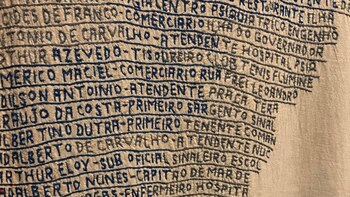 CENTRO PSIQUIATRICO ENGENHO
IDES DE FRANCO COMERCIARIO ILHA DO GOVERNADOR
TONIO DE CARVALHO-ATENDENTE HOSPITAL PSIQ
AZEVEDO-TISOUREIRO CLUB TENIS FLUMINE
MERICO MACIEL COMERCIARIO RUA PREFE LCADRO
DILSON ANTONIO-ATENDENTE PRAÇA TERA
ARAUJO DA COSTA-PRIMEIRO SARGENTO SINAL
ILBERTINO DUTRA-PRIMEIRO TENENTE COMAN
ADALBERTO DE CARVALHO-ATENDENTE NAU
ARTHUR ELOY-SUB OFICIAL SINALEIRO ESCOL
ADALBERTO NUNES-CAPITAO DE MAR DE
GAS-ENFERMEIRO HOSPITA